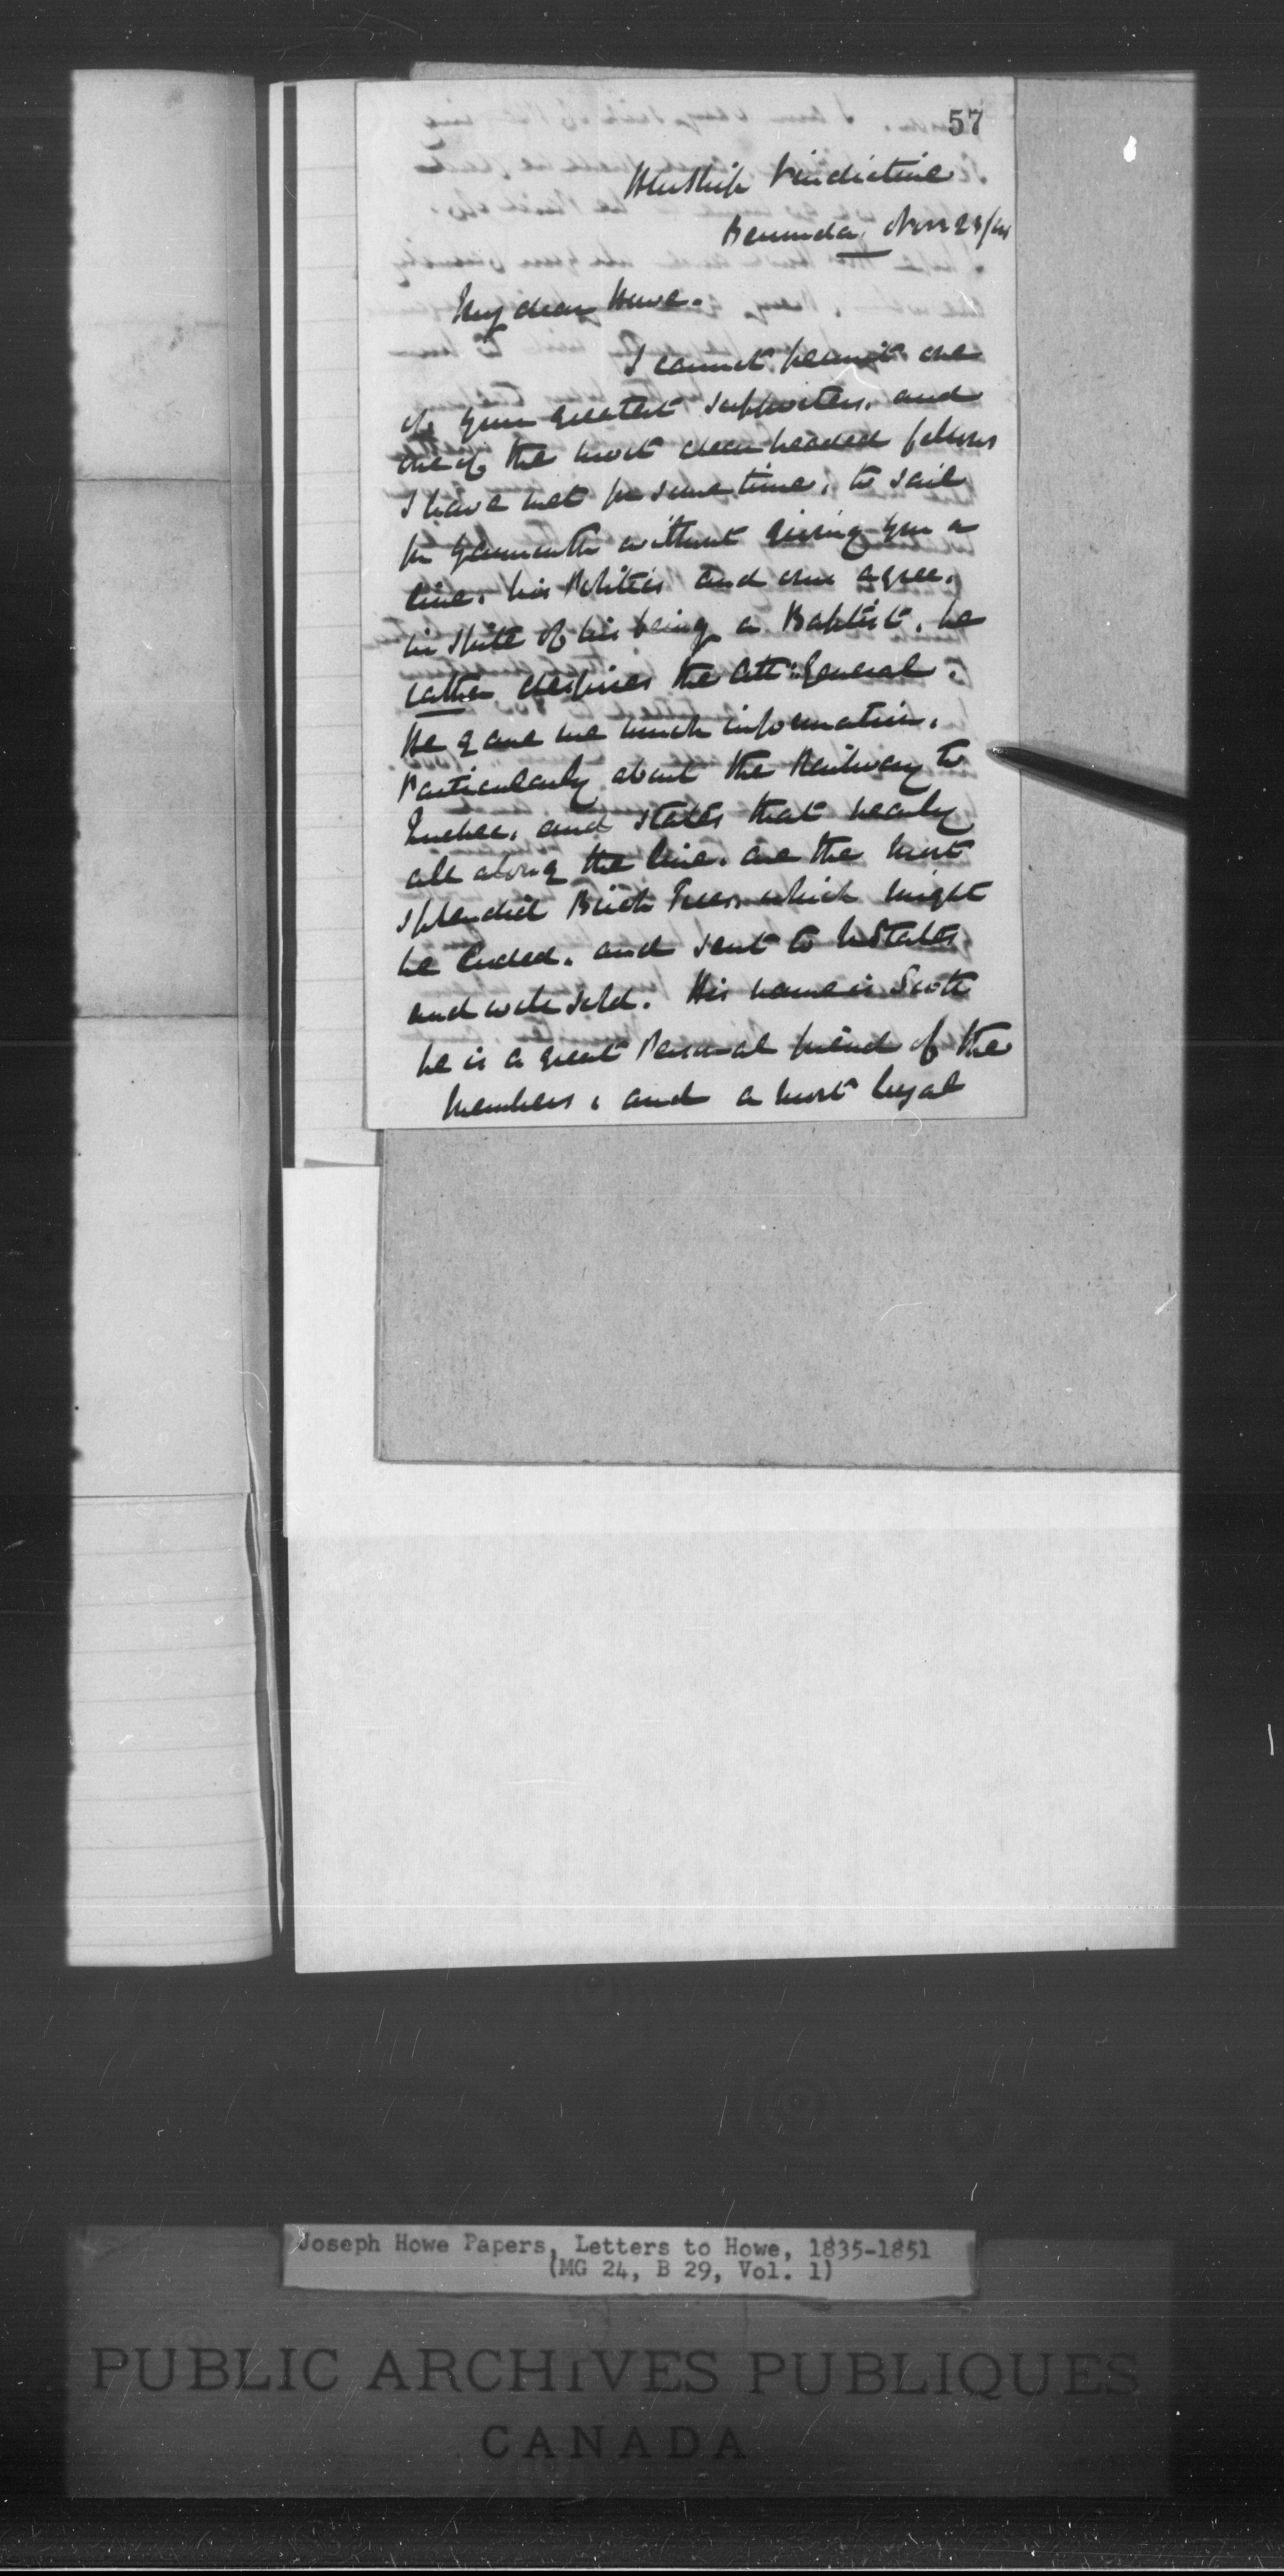 57
HM Ship Vindictive
Bermuda. Nov 23/
My dear Howe.
I cannot permit one
of your greatest supporters. and
one of the most clear headed fellows
I have met for some time, to sail
for Yarmouth without giving you a
line. his Politics and our agree.
in spite of his being a Baptist. he
rather despises the Att: General.
He gave me much information,
Particularly about the Railway to
Quebec, and states that nearly
all along the line. are the most
splendid Birch Trees, which might
be and sent to States
and well sold. His name is Scott
he is a great Personal friend of the
Members, and a most loyal
Joseph Howe Papers, Letters to Howe, 1835-1851
(MG 24, B 29, Vol. 1)
PUBLIC ARCHIVES PUBLIQUES
CANADA